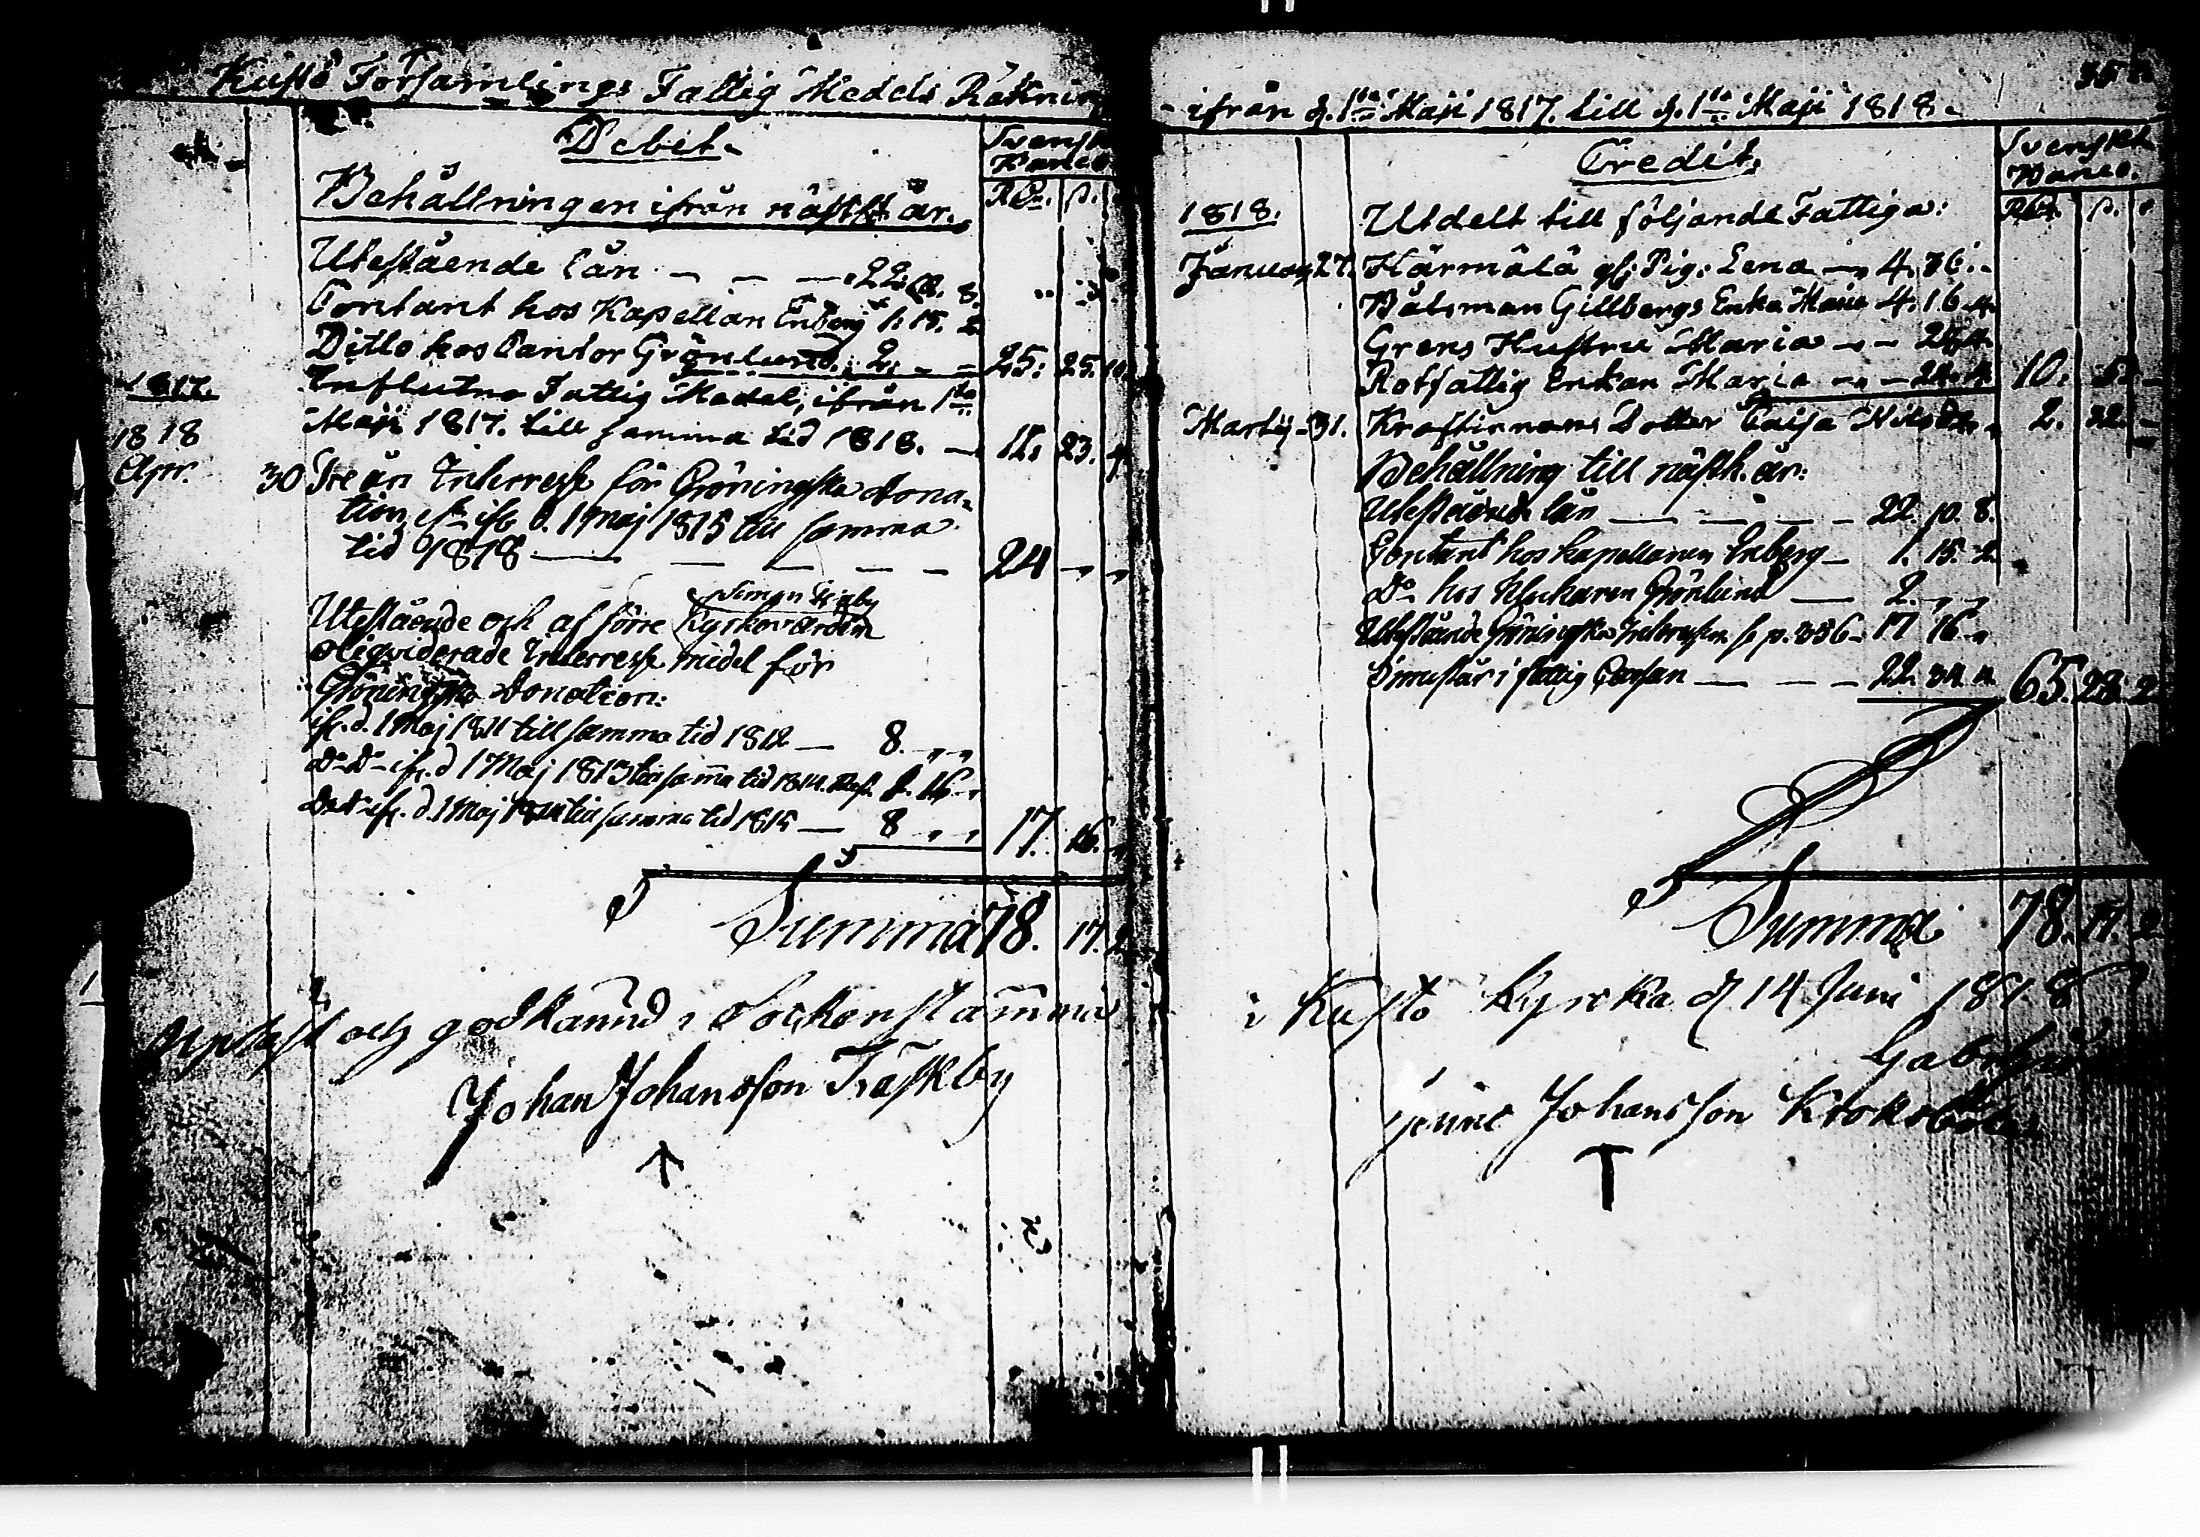 Kustö Församlings Fattig Medels Räkning
Debet.
Svenskt
Banco
Rdr. s.
Behållningen ifrån nästl. år.
Utestående lån — — — 22. 10. 8.
Contant hos Kapellan Enberg 1. 15. 2
Ditto hos Cantor Grönlund. 2. - - 25. 25. 10
1817. Influtna Fattig Medel, ifrån 1sta
Maji 1817. till samma tid 1818. — 11. 23. 4
1818
Apr. 30 Tre års Interresse för Gröningska dona-
tion ifr. d. 1 Maj 1815 till samma
tid 1818 — — — — — 24 „ „
Simon
Utestående och af förre Kyrkovärden
oliqviderade Interresse medel för
Gröningska donation:
ifr. d. 1 Maj 1811 till samma tid 1812 — 8. „ „
Do Do ifr. d 1 Maj 1813 till samma tid 1814. Rest. 1. 16 „
Do Do ifr. d. 1 Maj 1814 till samma tid 1815 — 8 „ „ 17. 16. „
Summa 78. 17. 2
Upläst och godkännd i Sockenstämma
Johan Johansson Träskby
ifrån d. 1sta Maji 1817. till d. 1sta Maji 1818.
Credit.
Svenskt
Banco.
Rdr. s.
1818. Utdelt till följande Fattiga:
January 27. Härmälä Pig. Lena — 4. 36. -
Båtsman Gillbergs Enka Maria 4. 16. 4.
Grens Hustru Maria — — 24. 4.
Rotfattig Enkan Maria — — 24. 4. 10. 5. —
Martij - 31. Dotter Caisa 2. 32. —
Behållning till nästk. år:
Utestående lån — — — — 22. 10. 8.
Contant hos kapellanen Enberg — 1. 15. 2
Do hos Klockaren Grönlund — 2. „ „
Utestående Gröningska Interessen s. p. 336 - 17 16 „
Innestår i fattig Cassan — — — 22. 34. 4. 65. 28. 2
Summa 78. 17. 2
i Kustö Kyrka d 14 Juni 1818
Johansson